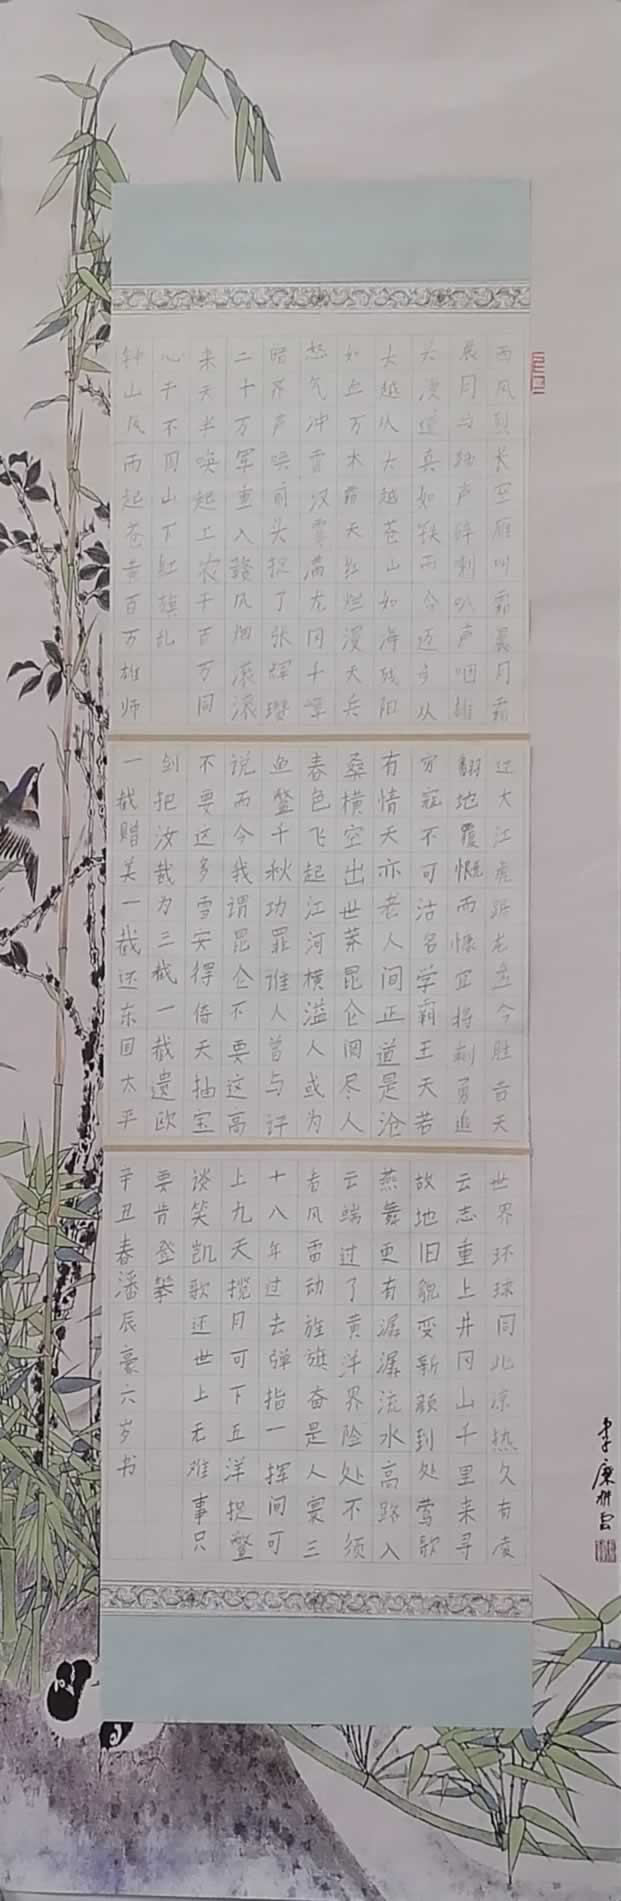 西风烈长空雁叫霜晨月霜
晨月马蹄声碎喇叭声咽雄
关漫道真如铁而今迈步从
头越从头越苍山如海残阳
如血万木霜天红烂漫天兵
怒气冲霄汉雾满龙冈千嶂
暗齐声唤前头捉了张辉瓒
二十万军重入赣风烟滚滚
来天半唤起工农千百万同
心干不周山下红旗乱
钟山风雨起苍黄百万雄师
过大江虎踞龙盘今胜昔天
翻地覆慨而慷宜将剩勇追
穷寇不可沽名学霸王天若
有情天亦老人间正道是沧
桑横空出世莽昆仑阅尽人
春色飞起江河横溢人或为
鱼鳖千秋功罪谁人曾与评
说而今我谓昆仑不要这高
不要这多雪安得倚天抽宝
剑把汝裁为三截一截遗欧
一截赠美一截还东国太平
世界环球同此凉热久有凌
云志重上井冈山千里来寻
故地旧貌变新颜到处莺歌
燕舞更有潺潺流水高路入
云端过了黄洋界险处不须
看风雷动旌旗奋是人寰三
十八年过去弹指一挥间可
上九天揽月可下五洋捉鳖
谈笑凯歌还世上无难事只
要肯登攀
辛丑春潘辰豪六岁书